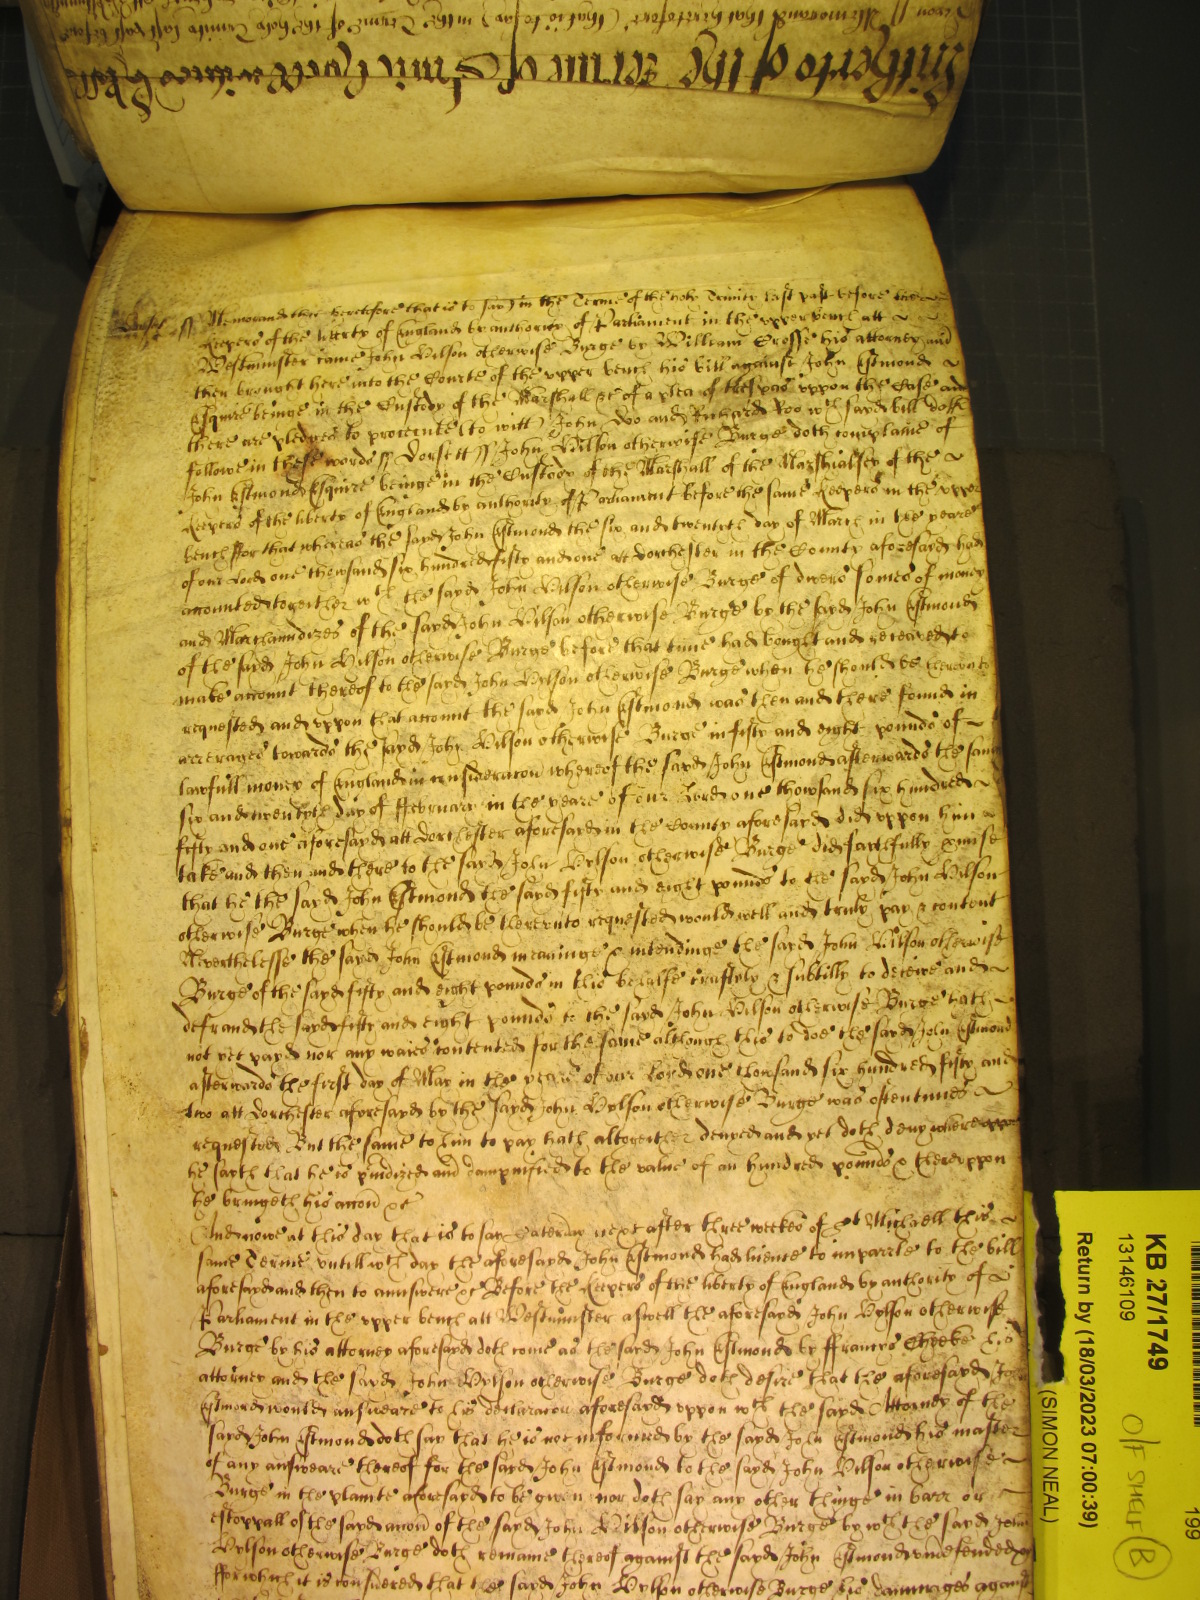 Hitherto of the Terme of
Dorset ss Memorand that heretofore that is to say in the Terme of the holy Trinity last past before the
keepers of the liberty of England by authority of Parliament in the upper bench att
Westminster came John Vilson otherwise Burge by William Crosse his attorney and
then brought here into the Courte of the upper bench his bill against John Estmond
Esquire beinge in the Custody of the Marshall &c of a plea of trespas uppon the Case and
there are pledges to prosecute (to witt) John Doo and Richard Roo wch sayd bill doth
followe in these words ss Dorsett ss John Vilson otherwise Burge doth complaine of
John Estmond Esquire beinge in the Custody of the Marshall of the Marshalsey of the
keepers of the liberty of England by authority of Parliament before the same keepers in the upper
bench ffor that whereas the sayd John Estmond the six and twentyth day of March in the yeare
of our Lord one thowsand six hundred fifty and one att Dorchester in the County aforesayd had
accounted togeither wth the sayd John Vilson otherwise Burge of divers somes of money
and Marchaundizes of the sayd John Vilson otherwise Burge by the sayd John Estmond
of the sayd John Vilson otherwise Burge before that time had bought and receaved to
make account thereof to the sayd John Vylson otherwise Burge when he should be thereunto
requested and uppon that account the sayd John Estmond was then and there found in
arrerages towards the sayd John Vilson otherwise Burge in fifty and eight pounds of
lawfull money of England in consideracon whereof the sayd John Estmond afterwards the same
six and twentyth day of ffebruary in the yeare of our Lord one thowsand six hundred
fifty and one aforesayd att Dorchester aforesayd in the County aforesayd did uppon him
take and then and there to the sayd John Vylson otherwise Burge did faithfully pmise
that he the sayd John Estmond the sayd fifty and eight pounds to the sayd John Vilson
otherwise Burge when he should be thereunto requested would well and truly pay & content
Neverthelesse the sayd John Estmond meaninge & intendinge the sayd John Vilson otherwise
Burge of the sayd fifty and eight pounds in this behalfe craftyly & subtilly to deceive and
defraud the sayd fifty and eight pounds to the sayd John Vilson otherwise Burge hath
not yet payd nor any waies contented for the same although this to doe the sayd John Estmond
afterwards the first day of May in the yeare of our Lord one thowsand six hundred fifty and
two att Dorchester aforesayd by the sayd John Vylson otherwise Burge was oftentimes
requested But the same to him to pay hath altogeither denyed and yet doth deny whereuppon
he sayth that he is pindized and dampnified to the value of an hundred pounds & thereuppon
he bringeth his accon &c
And nowe at this day that is to say Saterday next after three weekes of St Michaell this
same Terme untill wch day the aforesayd John Estmond had licence to imparle to the bill
aforesayd and then to annswere &c Before the keepers of the liberty of England by authority of
Parliament in the upper bench att Westminster aswell the aforesayd John Vylson otherwise
Burge by his attorney aforesayd doth come as the sayd John Estmond by ffrancys Cheeke his
attorney and the sayd John Vylson otherwise Burge doth desire that the aforesayd John
Estmond would answeare to his declaracon aforesayd uppon wch the sayd Attorney of the
sayd John Estmond doth say that he is not informed by the sayd John Estmond his master
of any answeare thereof for the sayd John Estmond to the sayd John Vilson otherwise
Burge in the plainte aforesayd to be given nor doth say any other thinge in barr or
estoppall of the sayd accon of the sayd John Vilson otherwise Burge by wch the sayd John
Vylson otherwise Burge doth remaine thereof against the sayd John Estmond undefended
ffor which it is considered that the sayd John Vylson otherwise Burge his dammages against
KB 27/1749
13146109
Return by (18/03/2023 07:00:39)
(SIMON NEAL)
O/F SHELF B
199